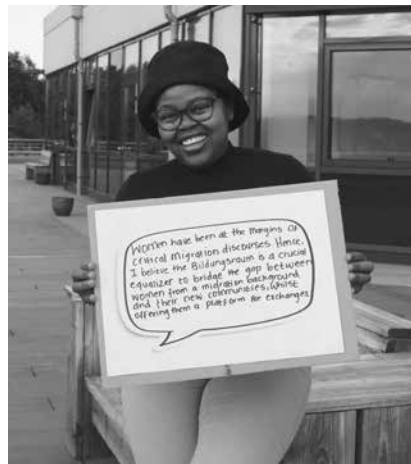 Women have been at the margins of
critical migration discourses. Hence,
I believe the Bildungsraum is a crucial
equalizer to bridge the gap between
women from a migration background
and their new communities, whilst
offering them a platform for exchanges